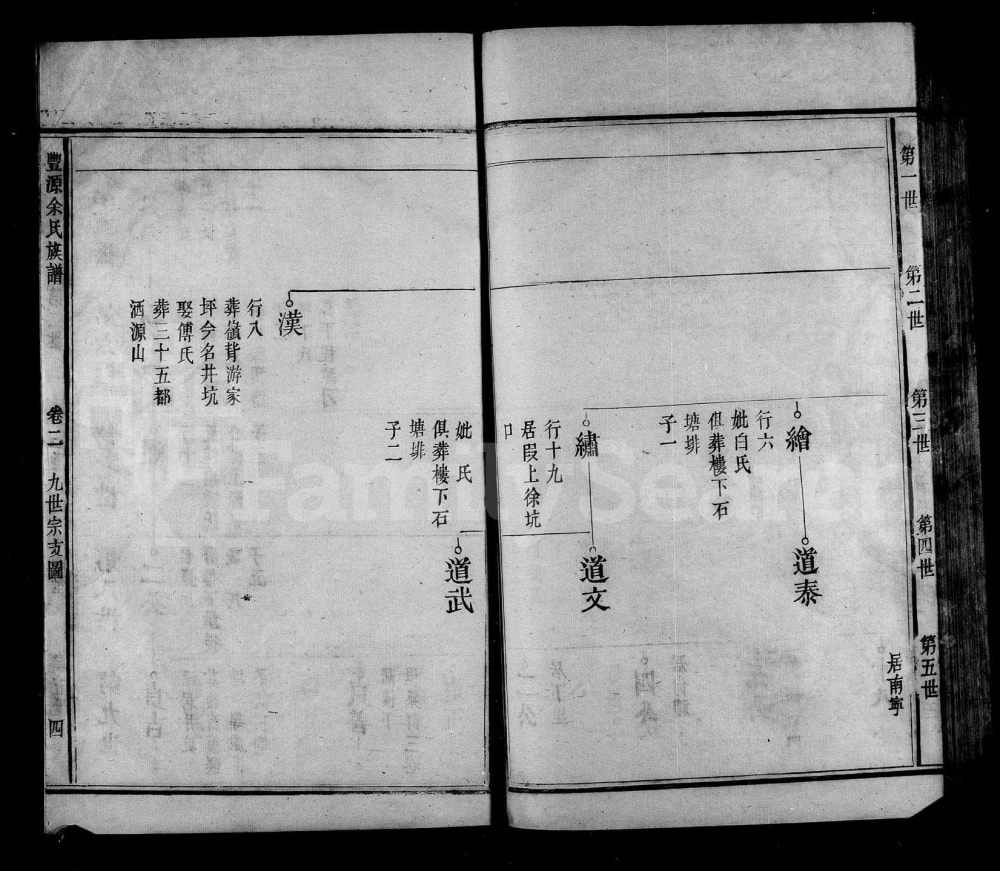 第一世
第二世
第三世
第四世
第五世
居南寧
繪
行六
妣白氏
俱葬樓下石
塘排
子一
道泰
繡
行十九
居段上徐坑
口
道文
妣氏
俱葬樓下石
塘排
子二
道武
漢
行八
葬嶺背游家
坪今名井坑
娶傅氏
葬三十五都
洒源山
豐源余氏族譜
卷二
九世宗支圖
四
FamilySearch